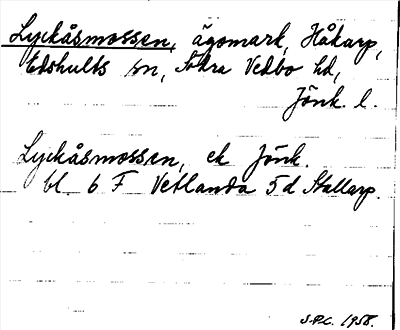 Lyckåsmossen, ägomark, Håkarp,
Edshults sn, Södra Vedbo hd,
Jönk. l.
Lyckåsmossen, ek Jönk.
bl. 6 F Vetlanda 5 d Stallarp.
S.P.C. 1958.